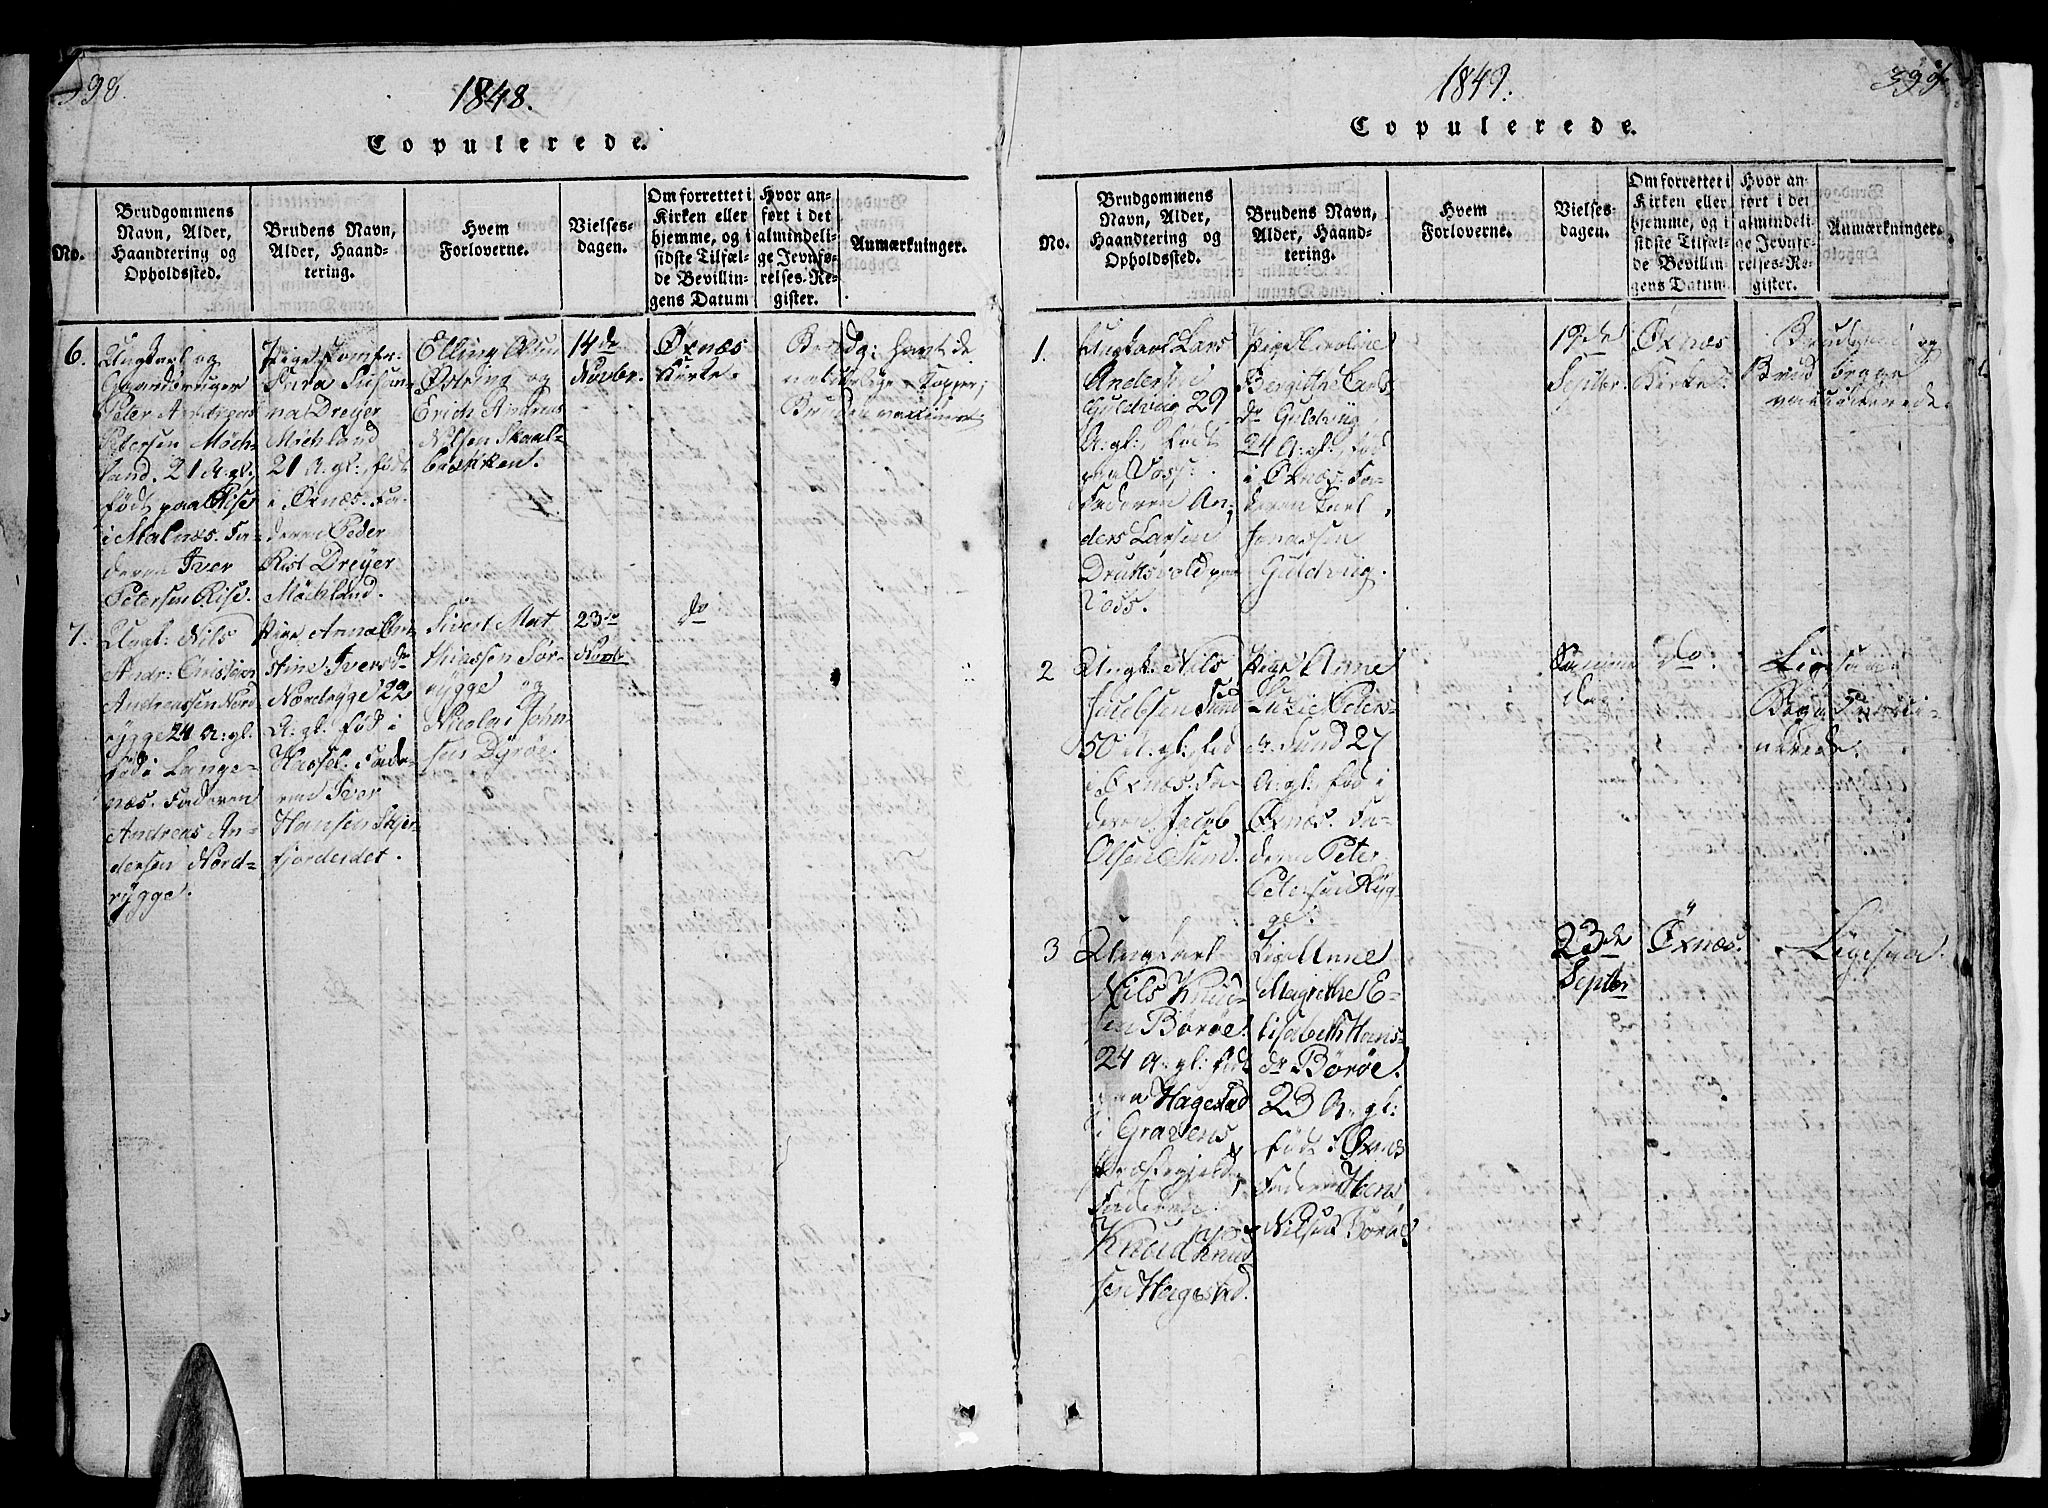 398.
1848.
Copulerede.
No.
Brudgommens
Navn, Alder,
Haandtering og
Opholdssted.
Brudens Navn,
Alder, Haand-
tering.
Hvem
Forloverne.
Vielses-
dagen.
Om forrettet i
Kirken eller
hjemme, og i
sidste Tilfæl-
de Bevillin-
gens Datum
Hvor an-
ført i det
almindeli-
ge Jevnfø-
relses-Re-
gister.
Anmærkninger.
6.
Ungkarl og
Gaardbruger
Peter Andreas
Petersen Möch-
land. 21 A: gl:,
födt paa Rise
i Malnæs. Fa-
deren Iver
Petersen Rise.
Pige Jomfr:
Sara Susan-
na Dreyer
Möchland
21 A: gl: föd
i Öxnæs. Fa-
deren Peder
Rist Dreyer
Möchland.
Elling Olsen
Östring og
Erich Andreas
Nilsen Skaal-
brækken.
14de
Novbr.
Öxnæs
Kirke.
Brudg: havt de
naturlige Kopper;
Bruden vaccineret
7.
Ungk: Nils
Andr: Christian
Andreassen Nord
rygge 24 A: gl.
föd i Lange-
næs. Faderen
Andreas An-
dersen Nord-
rygge.
Pige Anna Chri
stine Iversdr
Nordrygge 22
A: gl. föd i
Hassel. Fade-
ren Iver
Hansen Skjer-
fjordeidet.
Sivert Mat
thiassen Sör-
rygge og
Nicolai John-
sen Dyröe.
23de
Novbr
do
1849.
399
Copulerede.
No.
Brudgommens
Navn, Alder,
Haandtering og
Opholdssted.
Brudens Navn,
Alder, Haand-
tering.
Hvem
Forloverne.
Vielses-
dagen.
Om forrettet i
Kirken eller
hjemme, og i
sidste Tilfæl-
de Bevillin-
gens Datum.
Hvor an-
ført i det
almindeli-
ge Jevnfø-
relses-Re-
gister.
Anmærkninger.
1.
Ungkarl Lars
Andersen
Guldviig 29
A: gl:, födt
paa Voss.
Faderen An-
ders Larsen
Druksvold paa
Voss.
Pige Caroline
Bergitthe Carls
dr Guldviig,
24 A: gl:, föd
i Öxnæs. Fa-
deren Karl
Jonassen
Guldviig.
19de
Septbr.
Öxnæs
Kirke.
Brudgom og
Brud begge
vaccinerede.
2
Ungk: Nils
Jacobsen Sund
50 A: gl: föd
i Öxnæs. Fa-
deren Jacob
Olsen Sund.
Pige Anne
Lucie Peters-
dr Sund 27
A: gl., föd i
Öxnæs. Fa-
deren Peter
Petersen Ryg-
ge.
Samme
Dag.
do.
Ligesaa
Begge vacci-
nerede.
3
Ungkarl
Nils Knud-
sen Böröe.
24 A: gl: födt
paa Hagestad
i Gravens
Præstegjeld,
Faderen
Knud Knud
sen Hagestad.
Pige Anne
Magrethe E-
lisabeth Hans
dr Böröe.
23 A. gl:
föd i Öxnæs
Faderen Hans
Nilsen Böröe
23de
Septbr
Öxnæs.
Ligesaa.